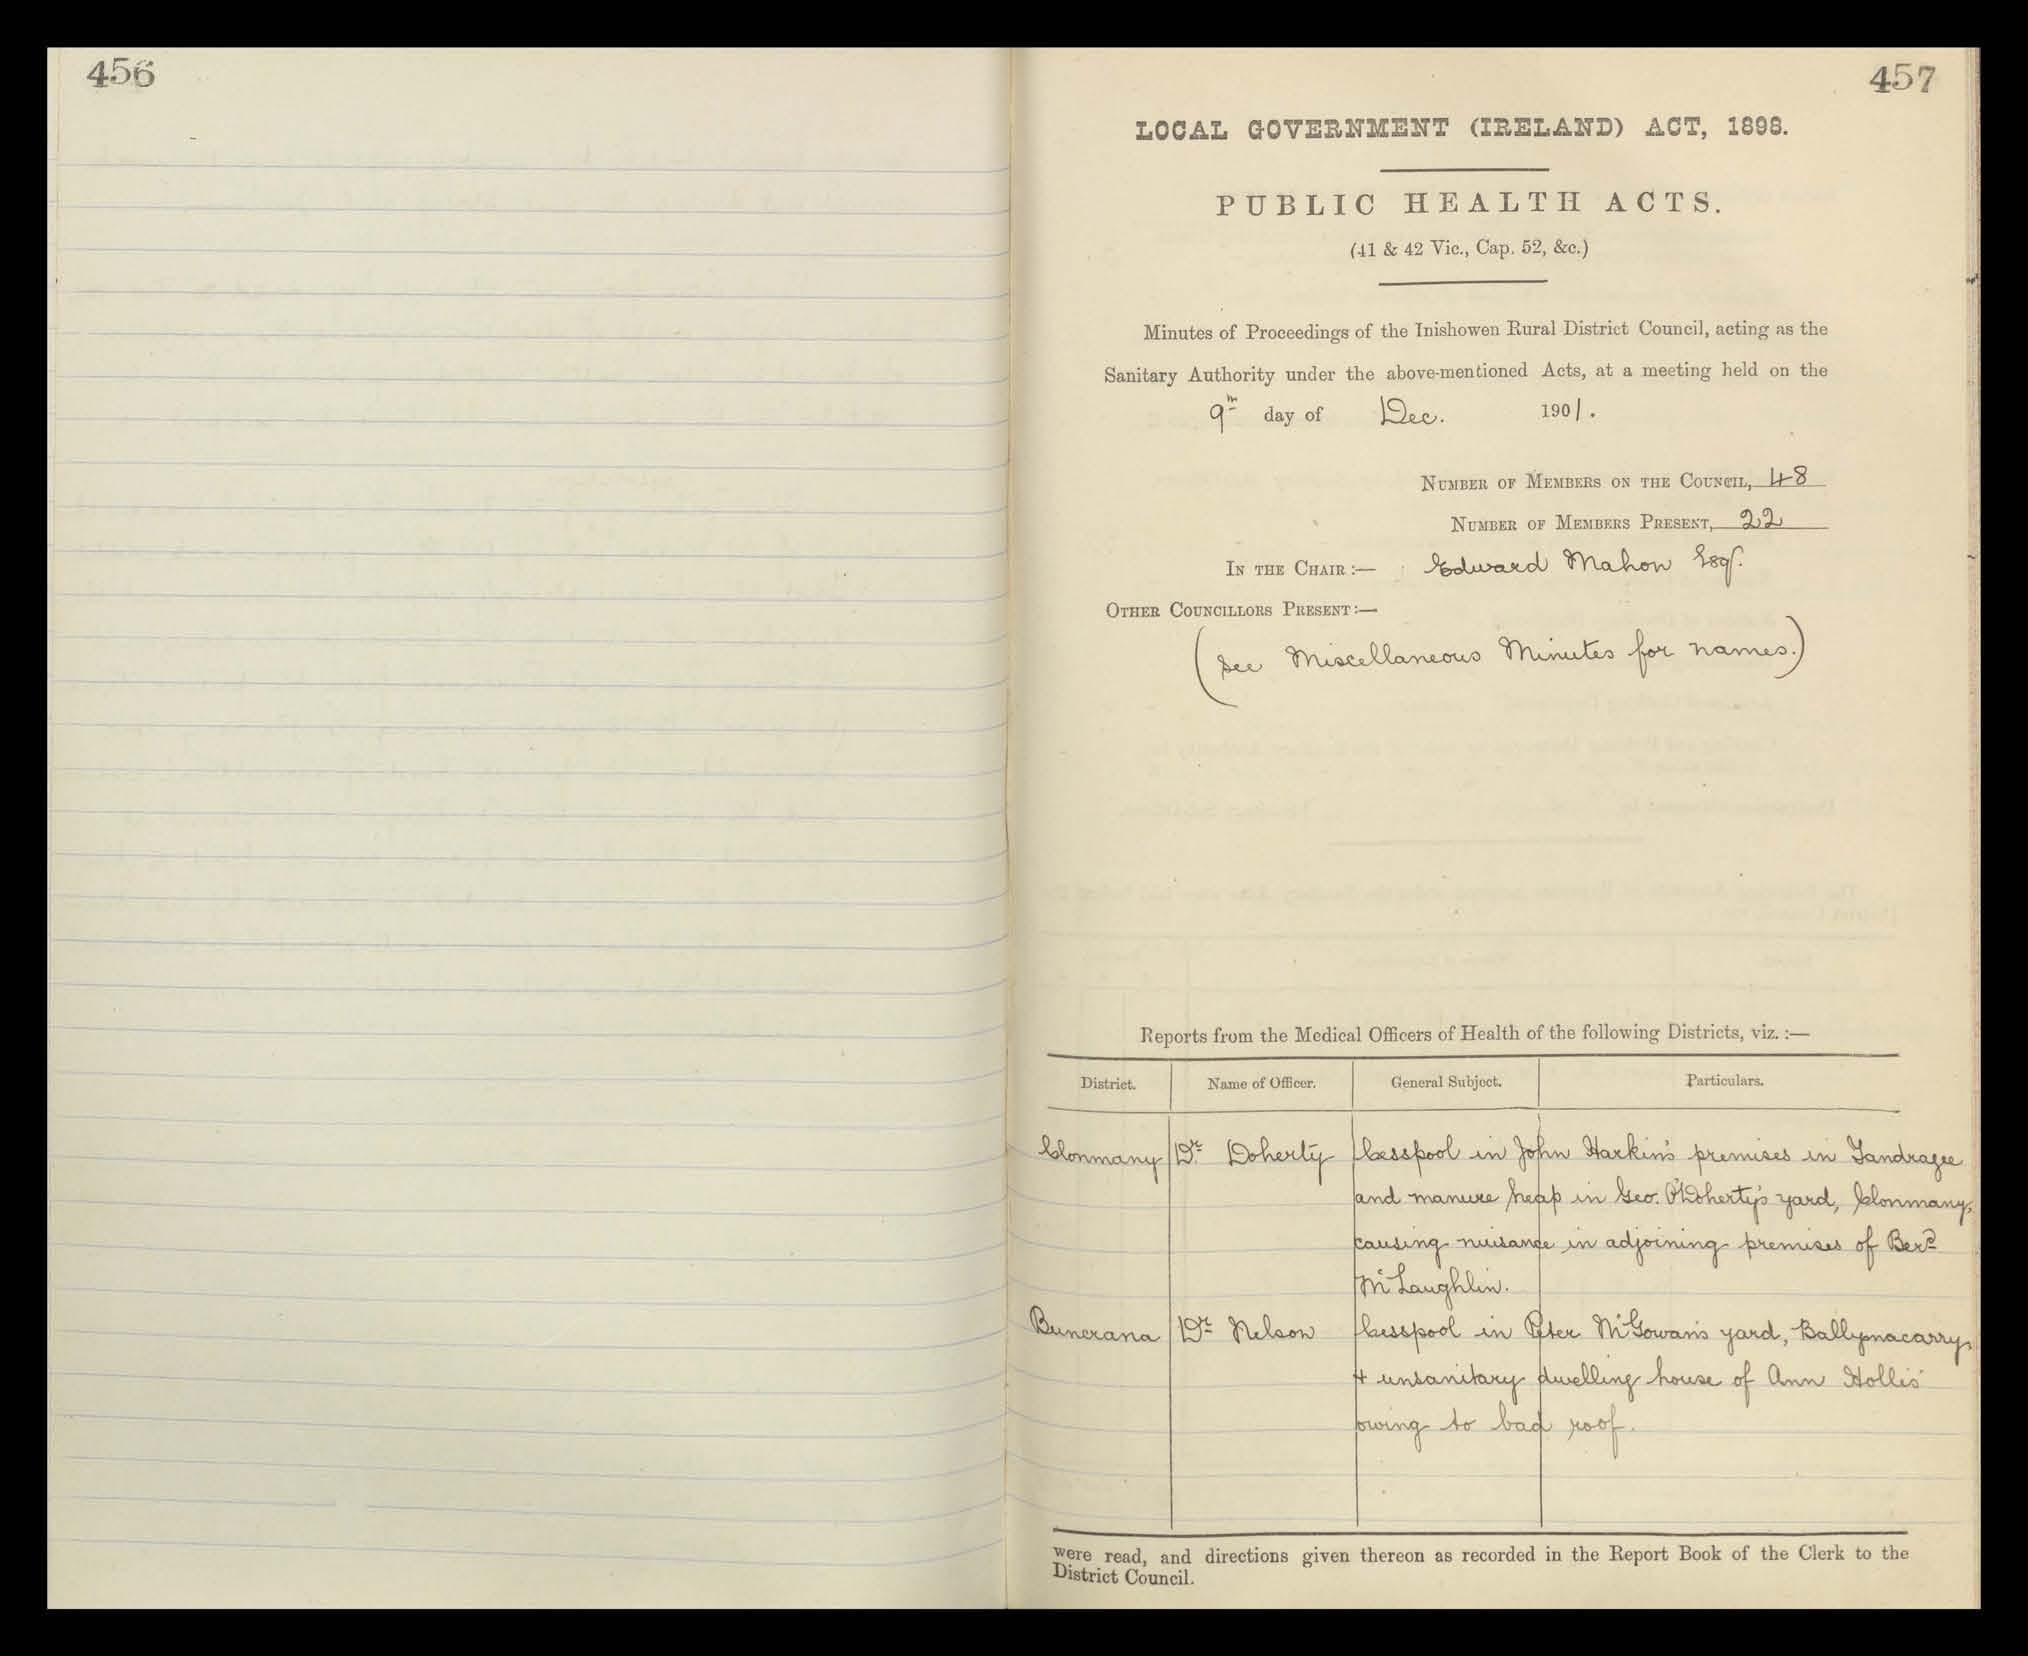 456
457
LOCAL GOVERNMENT (IRELAND) ACT, 1898.
PUBLIC HEALTH ACTS.
(41 & 42 Vic., Cap. 52, &c.)
Minutes of Proceedings of the Inishowen Rural District Council, acting as the
Sanitary Authority under the above-mentioned Acts, at a meeting held on the
9th day of Dec. 1901.
NUMBER OF MEMBERS ON THE COUNCIL, 48
NUMBER OF MEMBERS PRESENT, 22
IN THE CHAIR:— Edward Mahon Esqr.
OTHER COUNCILLORS PRESENT:—
(See Miscellaneous Minutes for names.)
Reports from the Medical Officers of Health of the following Districts, viz.:—
District. Name of Officer. General Subject. Particulars.
Clonmany Dr. Doherty Cesspool in John Harkin's premises in Tandragee
and manure heap in Geo. O'Doherty's yard, Clonmany,
causing nuisance in adjoining premises of Berd
McLaughlin.
Buncrana Dr. Nelson Cesspool in Peter McGowan's yard, Ballymacarry,
& unsanitary dwelling house of Ann Hollis'
owing to bad roof.
were read, and directions given thereon as recorded in the Report Book of the Clerk to the
District Council.